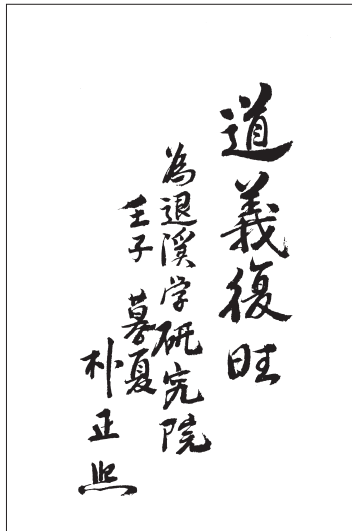 道義復旺
為退溪学研究院
壬子 暮夏
朴正熙